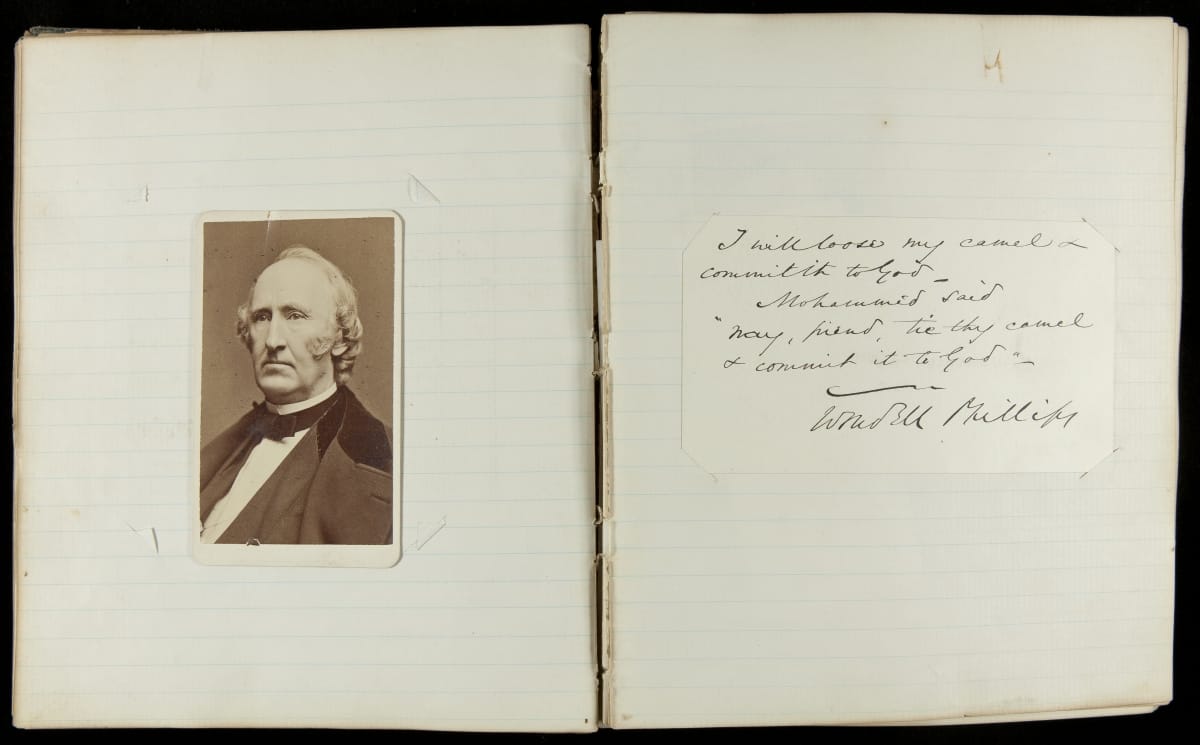 I will loose my camel &
commit it to God –
Mohammed said
"nay, friend, tie thy camel
& commit it to God" –
Wendell Phillips